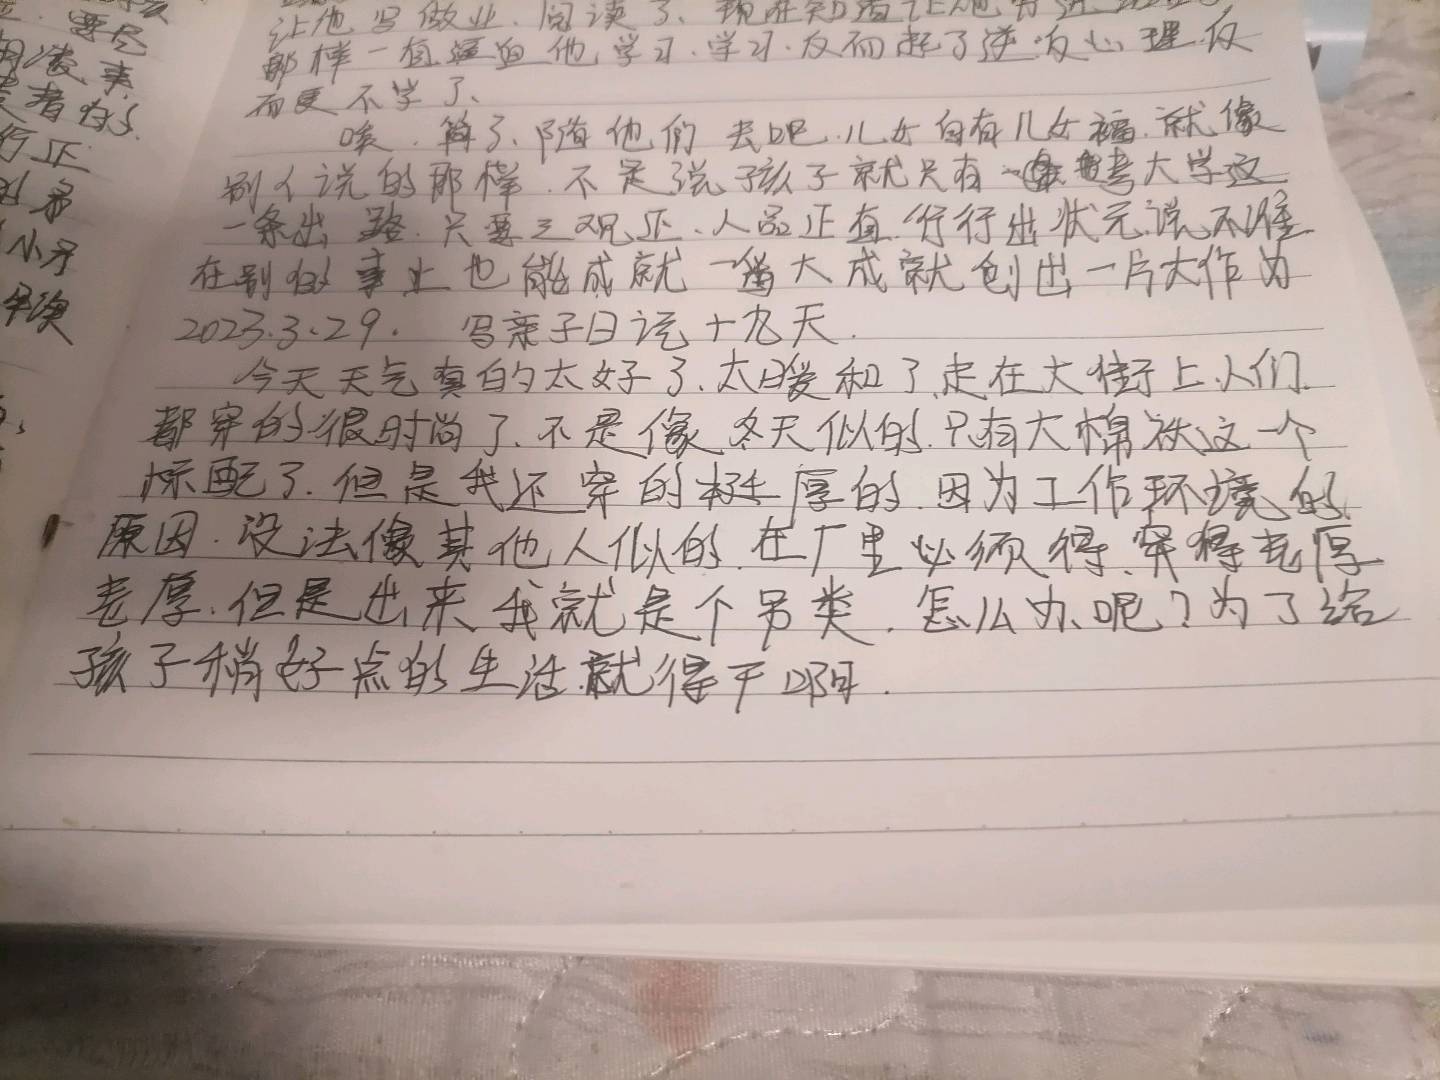 让他写做业.阅读了、
那样一直逼迫他学习.学习.反而起了逆反心理.反
而更不学了、
唉.算了、随他们去吧.儿女自有儿女福.就像
别人说的那样.不是说孩子就只有考大学这
一条出路.只要三观正、人品正直.行行出状元.说不准
在别的事业也能成就一番大成就创出一片大作为
2023.3.29. 写亲子日记十九天.
今天天气真的太好了、太暖和了.走在大街上.人们
都穿的很时尚了、不是像冬天似的.只有大棉袄这一个
标配了.但是我还穿的挺厚的.因为工作环境的
原因.没法像其他人似的.在厂里必须得、穿得老厚
老厚.但是出来我就是个另类.怎么办呢?为了给
孩子稍好点的生活.就得干啊.